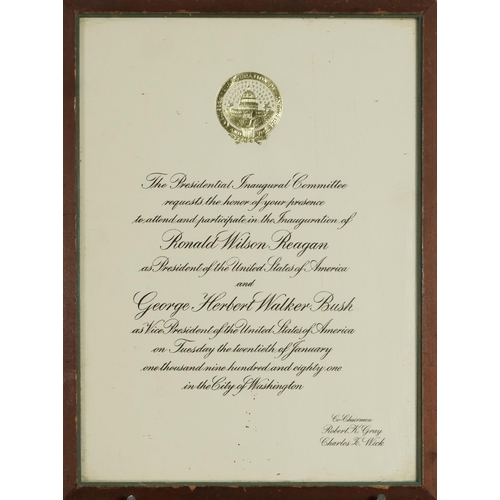 The Presidential Inaugural Committee
requests the honor of your presence
to attend and participate in the Inauguration of
Ronald Wilson Reagan
as President of the United States of America
and
George Herbert Walker Bush
as Vice President of the United States of America
on Tuesday the twentieth of January
one thousand nine hundred and eighty one
in the City of Washington
Co-Chairmen
Robert K. Gray
Charles Z. Wick